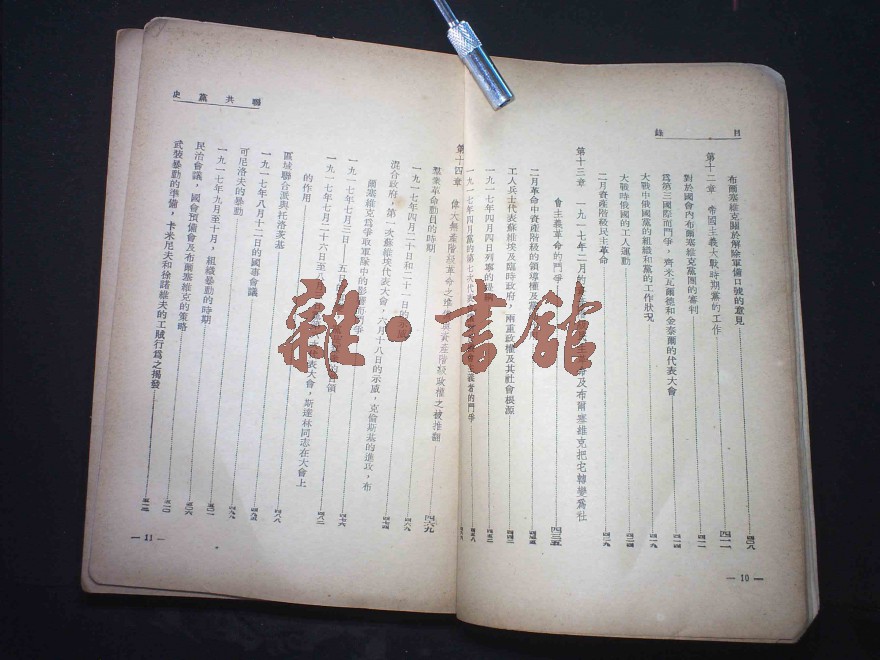 目錄
布爾塞維克關於解除軍備口號的意見 四〇八
第十二章 帝國主義大戰時期黨的工作 四一一
對於國會內布爾塞維克黨團的審判 四一一
爲第三國際而鬥爭，齊米瓦爾德和金泰爾的代表大會 四一四
大戰中俄國黨的組織和黨的工作狀況 四一九
大戰時俄國的工人運動 四二四
二月資產階級民主革命 四二九
第十三章 一九一七年二月的
及布爾塞維克把它轉變爲社
會主義革命的鬥爭 四三五
二月革命中資產階級的領導權及
工人兵士代表蘇維埃及臨時政府，兩重政權及其社會根源
一九一七年四月四日列寧的提
一九一七年四月黨的第七次代表
者的鬥爭
— 10 —
聯共黨史
第十四章 偉大無產階級革命之準
資產階級政權之被推翻 四六九
羣衆革命動員的時期 四六九
一九一七年四月二十日和二十一日的示威
混合政府，第一次蘇維埃代表大會，六月十八日的示威，克倫斯基的進攻，布
爾塞維克爲爭取軍隊中的影響而鬥爭 四七四
一九一七年七月三日——五日的
四七六
一九一七年七月二十六日至八月
代表大會，斯達林同志在大會上
的作用 四八二
區域聯合派與托洛茨基 四八八
一九一七年八月十二日的國事會議 四九五
可尼洛夫的暴動 四九六
一九一七年九月至十月，組織暴動的時期 五〇一
民治會議，國會預備會及布爾塞維克的策略 五〇六
武裝暴動的準備，卡米尼夫和徐諾維夫的工賊行爲之揭發
— 11 —
雜·書館